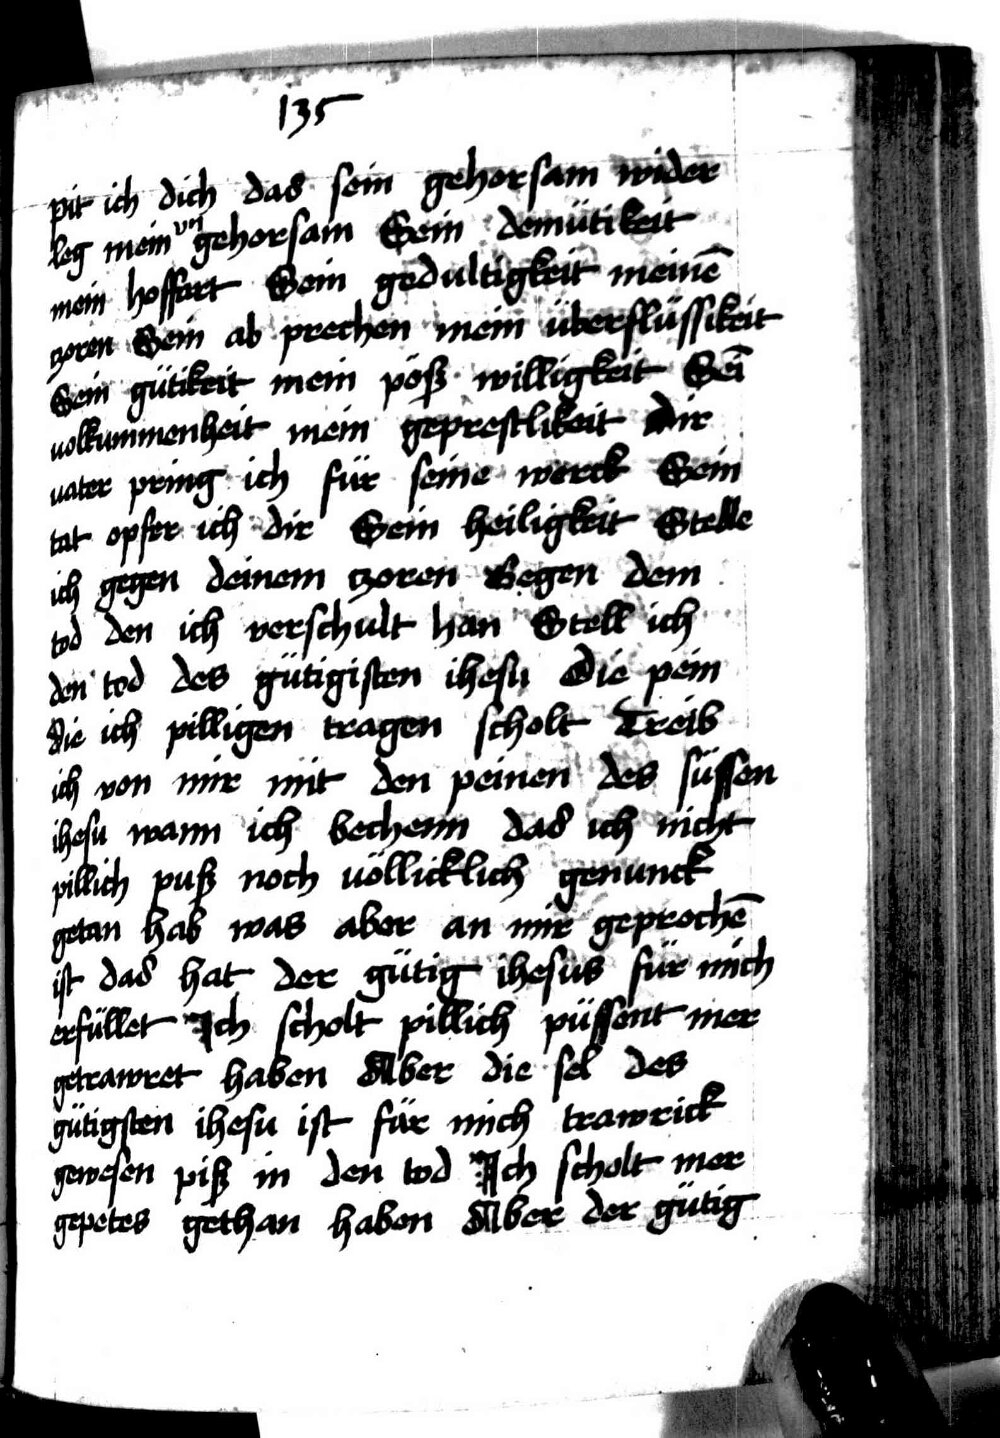 135
pit ich dich das sein gehorsam wider
leg mein vngehorsam Sein demütikeit
mein hoffart Sein gedultigkeit meinē
zoren Sein ab prechen mein überflüssikeit
Sein gütikeit mein pöß willigkeit Sei̅
volkummenheit mein geprestlikeit Dir
vater pring ich für seine werck Sein
tat opfer ich dir Sein heiligkeit Stelle
ich gegen deinem zoren Gegen dem
tod den ich verschult han Stell ich
den tod des gütigisten ihesu Die pein
die ich pilligen tragen scholt Treib
ich von mir mit den peinen des süssen
ihesu wann ich bechenn das ich nicht
pillich puß noch völlicklich genunck
getan hab was aber an mir geprochē
ist das hat der gütig ihesus für mich
erfüllet Ich scholt pillich püssent mer
getrawret haben Aber die sel des
gütigsten ihesu ist für mich trawrick
gewesen piß in den tod Ich scholt mer
gepetes gethan haben Aber der gütig